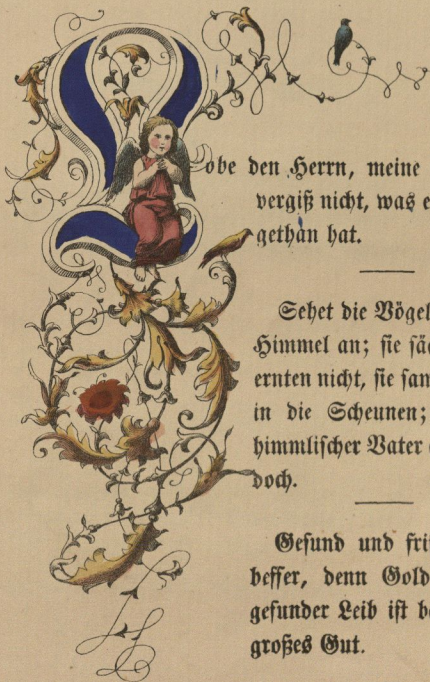 Lobe den Herrn, meine
vergiß nicht, was e
gethan hat.
Sehet die Vögel
Himmel an; sie säe
ernten nicht, sie sam
in die Scheunen;
himmlischer Vater
doch.
Gesund und fris
besser, denn Gold
gesunder Leib ist be
großes Gut.